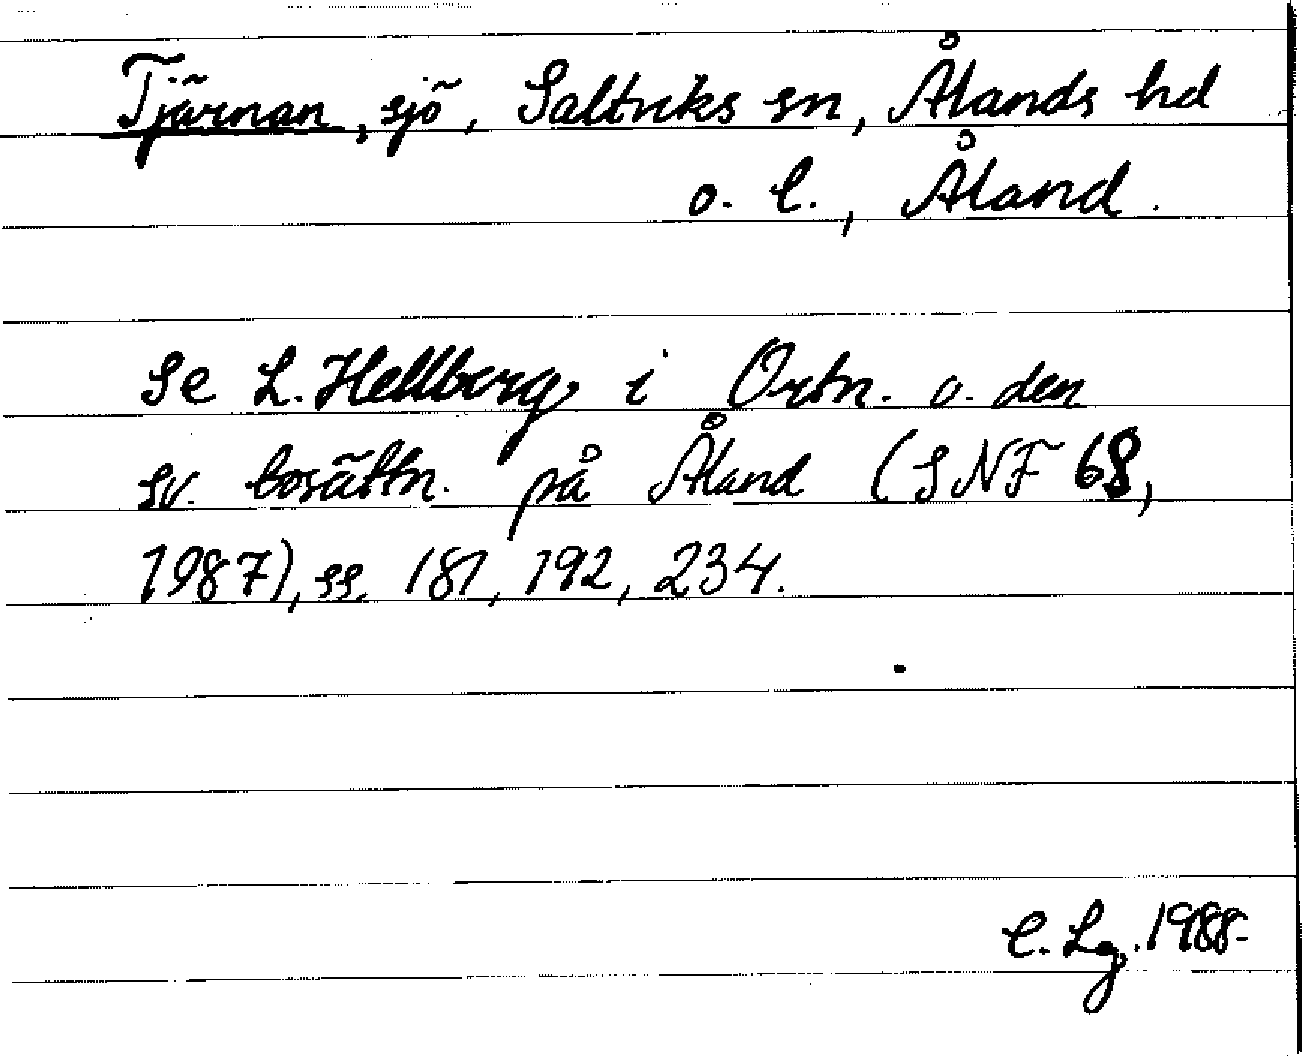 Tjärnan, sjö, Saltviks sn, Ålands hd
o. l., Åland.
Se L. Hellberg i Ortn. o. den
sv. bosättn. på Åland (SNF 68,
1987), ss. 181, 192, 234.
C. Lg. 1988.